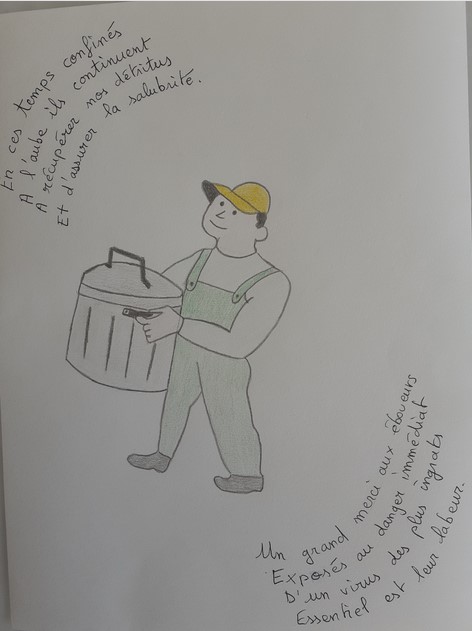 En ces temps confinés
A l'aube ils continuent
A récupérer nos détritus
Et d'assurer la salubrité.
Un grand merci aux éboueurs
Exposés au danger immédiat
D'un virus des plus ingrats
Essentiel est leur labeur.